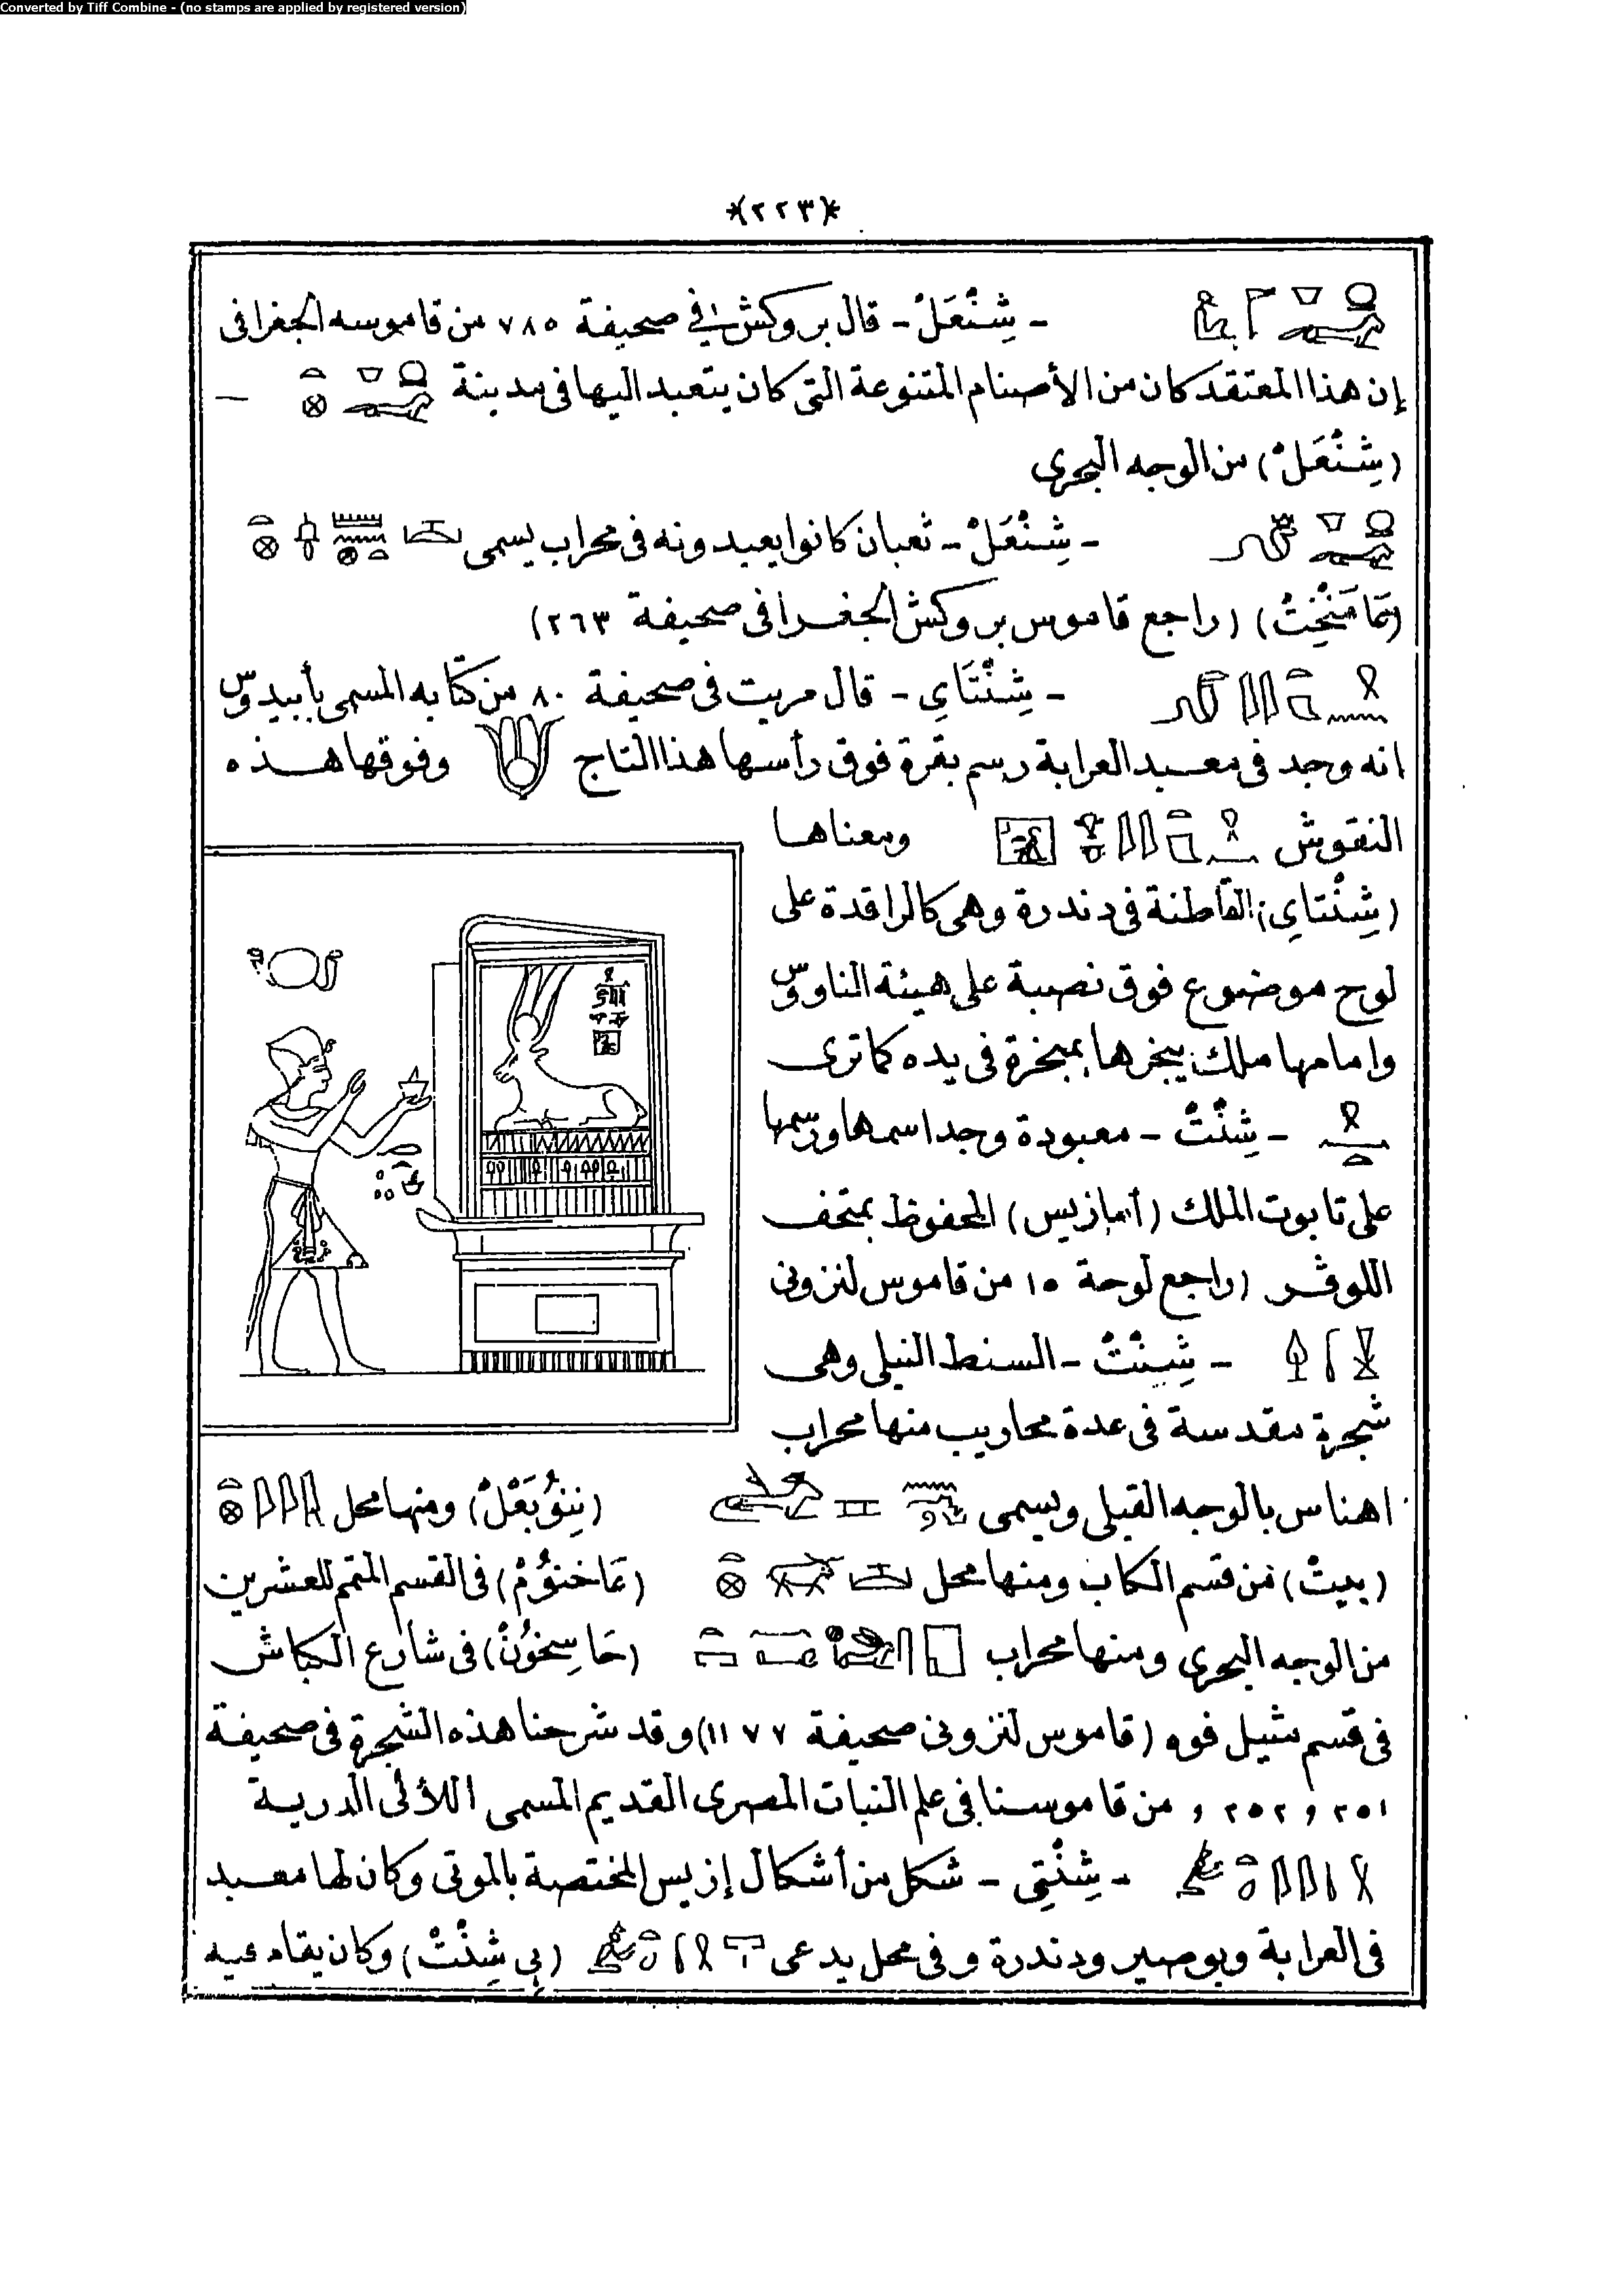 Converted by Tiff Combine - (no stamps are applied by registered version)
*(٢٢٣)*
- شِنْعَلْ - قال بروكش في صحيفة ٧٨٥ من قاموسه الجغرافى
إن هذا المعتقد كان من الأصنام المتنوعة التى كان يتعبد اليها فى مدينة —
(شِنْعَلْ) من الوجه البحرى
- شِنْعَلْ - ثعبان كانوا يعبدونه فى محراب يسمى
(راجع قاموس بروكش الجغرافى صحيفة ٢٦٣)
- شِنْتَاىِ - قال مريت فى صحيفة ٨٠ من كتابه المسمى بأبيدوس
انه وجد فى معبد العرابة رسم بقرة فوق رأسها هذا التاج وفوقها هذه
النقوش ومعناها
(شِنْتاىِ) القاطنة فى دندرة وهى كالراقدة على
لوح موضوع فوق نصبة على هيئة الناوس
وامامها ملك يبخرها بمبخرة فى يده كما ترى
- شِنْتْ - معبودة وجد اسمها ورسمها
على تابوت الملك (أمازيس) المحفوظ بمتحف
اللوڤر (راجع لوحة ١٥ من قاموس لنزونى
- شِنْتْ - السنط النيلى وهى
شجرة مقدسة فى عدة محاريب منها محراب
اهناس بالوجه القبلى ويسمى ومنها محل
(بيتْ) من قسم الكاب ومنها محل فى القسم المتمم للعشرين
من الوجه البحرى ومنها محراب فى شارع الكباش
فى قسم شيل فوه (قاموس لنزونى صحيفة ١١٧٧) وقد شرحنا هذه الشجرة فى صحيفة
٢٥١ و ٢٥٢ و من قاموسنا فى علم النبات المصرى القديم المسمى اللآلى الدرية
- شِنْتِى - شكل من أشكال إزيس المختصة بالموتى وكان لها معبد
فى العرابة وبوصير ودندرة وفى محل يدعى (بِى شِنْتْ) وكان يقام فيه